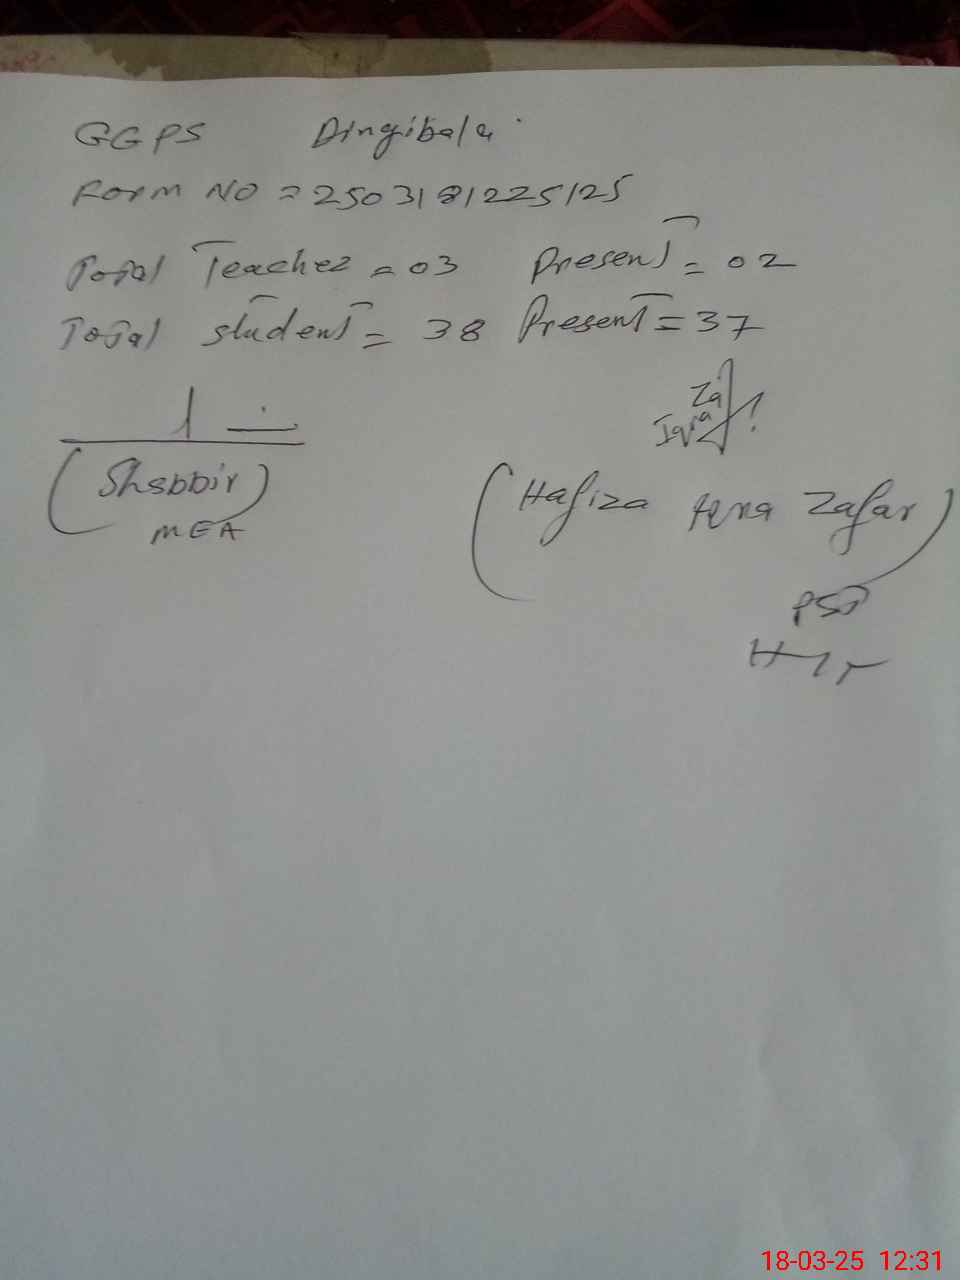 GGPS Dingibala
Form NO = 2503181225125
Total Teacher = 03 Present = 02
Total student = 38 Present = 37
(Shabbir)
MEA
(Hafiza Zafar)
PST
18-03-25 12:31